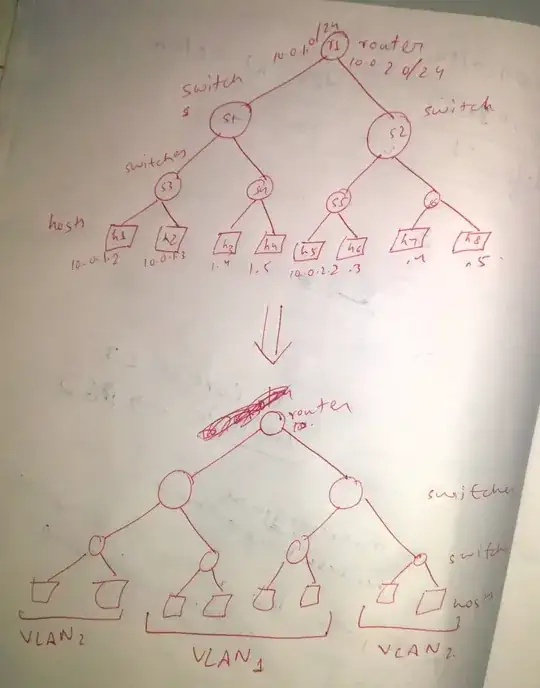 10.0.1.0/24 r1 router
10.0.2.0/24
switch
s
s1
switch
s2
switches
s3
s4
s5
hosts
h1 h2 h3 h4 h5 h6 h7 h8
10.0.1.2 10.0.1.3 1.4 1.5 10.0.2.2 .3 .4 .5
router
10.
switches
switch
hosts
VLAN2
VLAN1
VLAN2